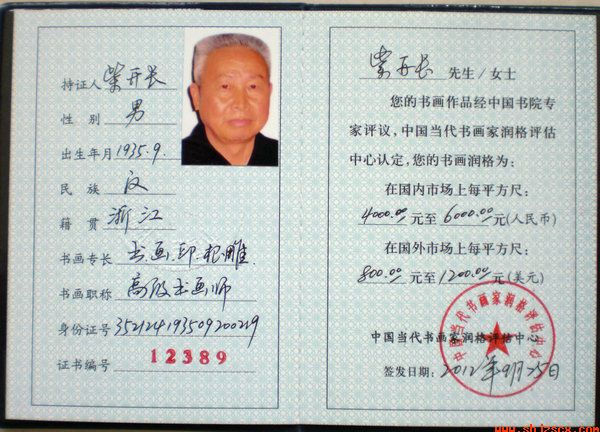 持证人 柴开长
性 别 男
出生年月 1935.9.
民 族 汉
籍 贯 浙江
书画专长 书.画.印.根雕.
书画职称 高级书画师
身份证号 352124193509200219
证书编号 12389
柴开长 先生/女士
您的书画作品经中国书院专
家评议,中国当代书画家润格评估
中心认定,您的书画润格为:
在国内市场上每平方尺:
4000.00 元至 6000.00 元(人民币)
在国外市场上每平方尺:
800.00 元至 1200.00 元(美元)
中国当代书画家润格评估中心
中国当代书画家润格评估中心
签发日期: 2012年9月25日